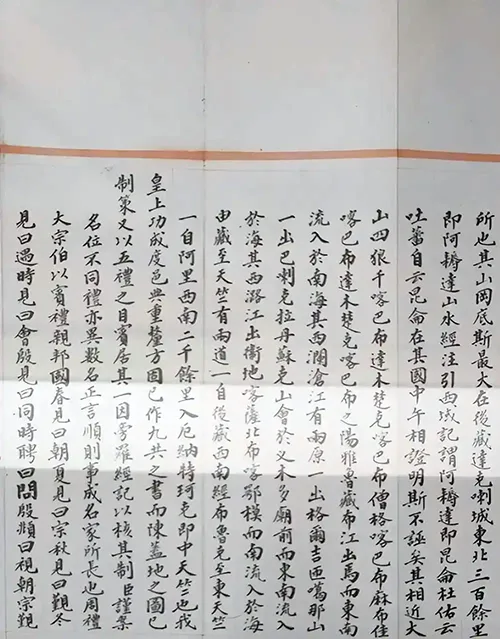 所也其山岡底斯最大在後藏達克喇城東北三百餘里
即阿耨達山水經注引西域記謂阿耨達即昆侖杜佑云
吐蕃自云昆侖在其國中午相證明斯不誣矣其相近大
山四狼千喀巴布達木楚克喀巴布僧格喀巴布麻布佳
喀巴布達木楚克喀巴布之陽雅魯藏布江出焉而東南
流入於南海其西瀾滄江有兩原一出格爾吉匝噶那山
一出巴喇克拉丹蘇克山會於义木多廟前而東南流入
於海其西潞江出衛地喀薩北布喀鄂模而南流入於海
由藏至天竺有兩道一自後藏西南經布魯克至東天竺
一自阿里西南二千餘里入厄納特珂克即中天竺也我
皇上功成度邑典重釐方固已作九共之書而陳蓋地之圖已
制策又以五禮之目賓居其一因旁羅經記以核其制臣謹案
名位不同禮亦異數名正言順則事成名家所長也周禮
大宗伯以賓禮親邦國春見曰朝夏見曰宗秋見曰覲冬
見曰遇時見曰會殷見曰同時聘曰問殷頫曰視朝宗覲